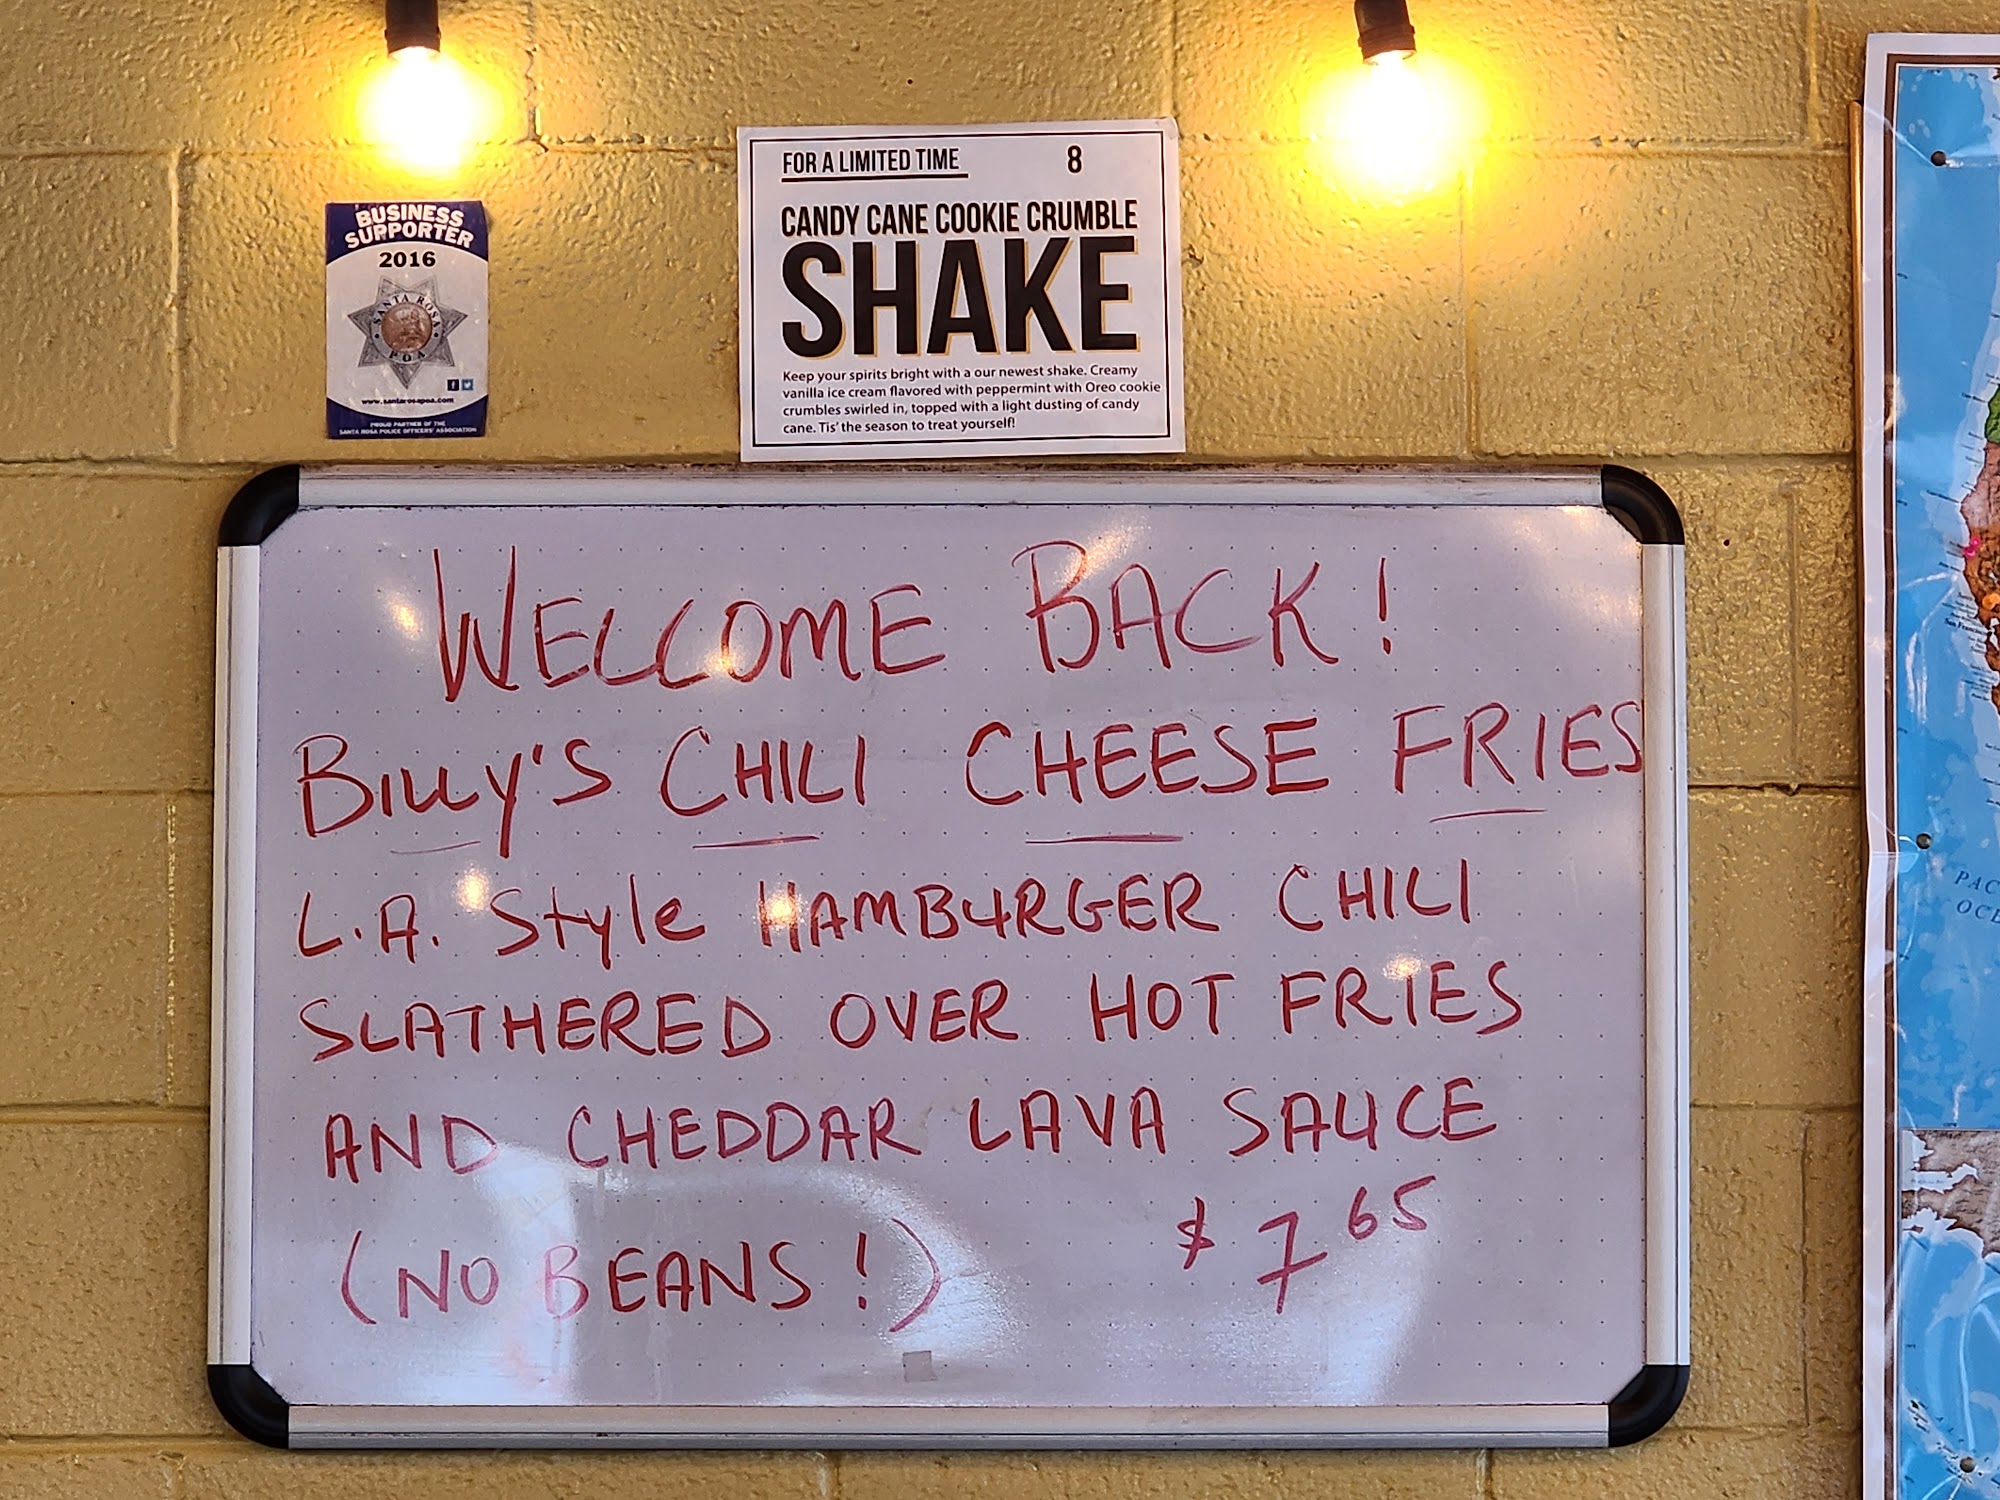 BUSINESS
SUPPORTER
2016
SANTA ROSA
POA
www.santarosapoa.com
PROUD PARTNER OF THE
SANTA ROSA POLICE OFFICERS' ASSOCIATION
FOR A LIMITED TIME 8
CANDY CANE COOKIE CRUMBLE
SHAKE
Keep your spirits bright with a our newest shake. Creamy
vanilla ice cream flavored with peppermint with Oreo cookie
crumbles swirled in, topped with a light dusting of candy
cane. Tis' the season to treat yourself!
WELCOME BACK!
BILLY'S CHILI CHEESE FRIES
L.A. Style HAMBURGER CHILI
SLATHERED OVER HOT FRIES
AND CHEDDAR LAVA SAUCE
(NO BEANS!) $7 65
San Francisco
PAC
OCE